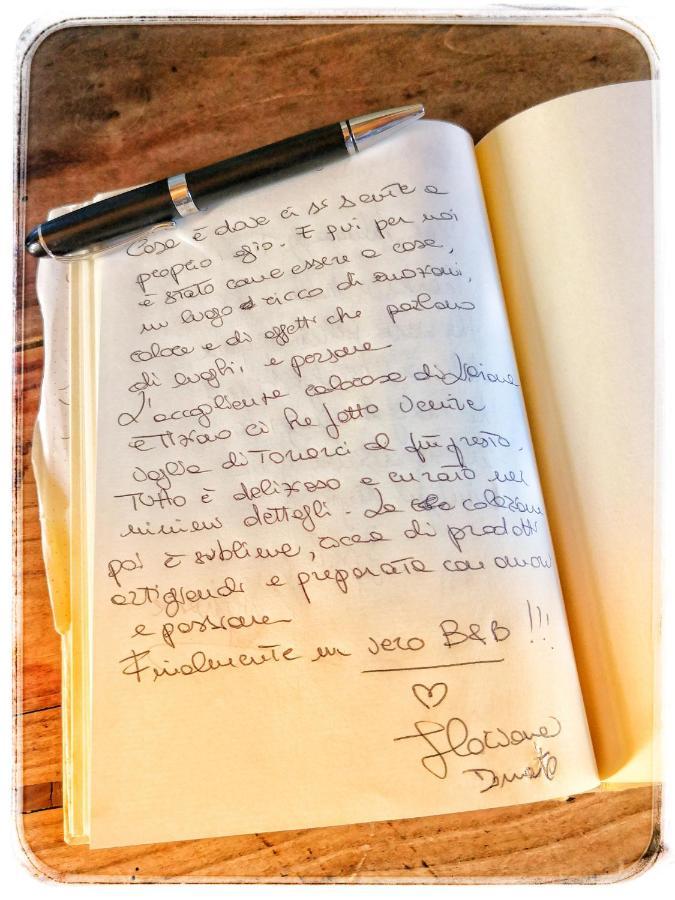 Casa è dove ci si sente a
proprio agio. E qui per noi
è stato come essere a casa,
un luogo ricco di emozioni,
calore e di oggetti che parlano
di luoghi, e persone
L'accogliente calorosa di
e Tiziano ci ha fatto venire
voglia di tornarci al più presto.
Tutto è delizioso e curato nei
minimi dettagli. La colazione
poi è sublime, ricca di prodotti
artigianali e preparata con amore
e passione
Finalmente un vero B&B !!!
♡
Floriana
Donato